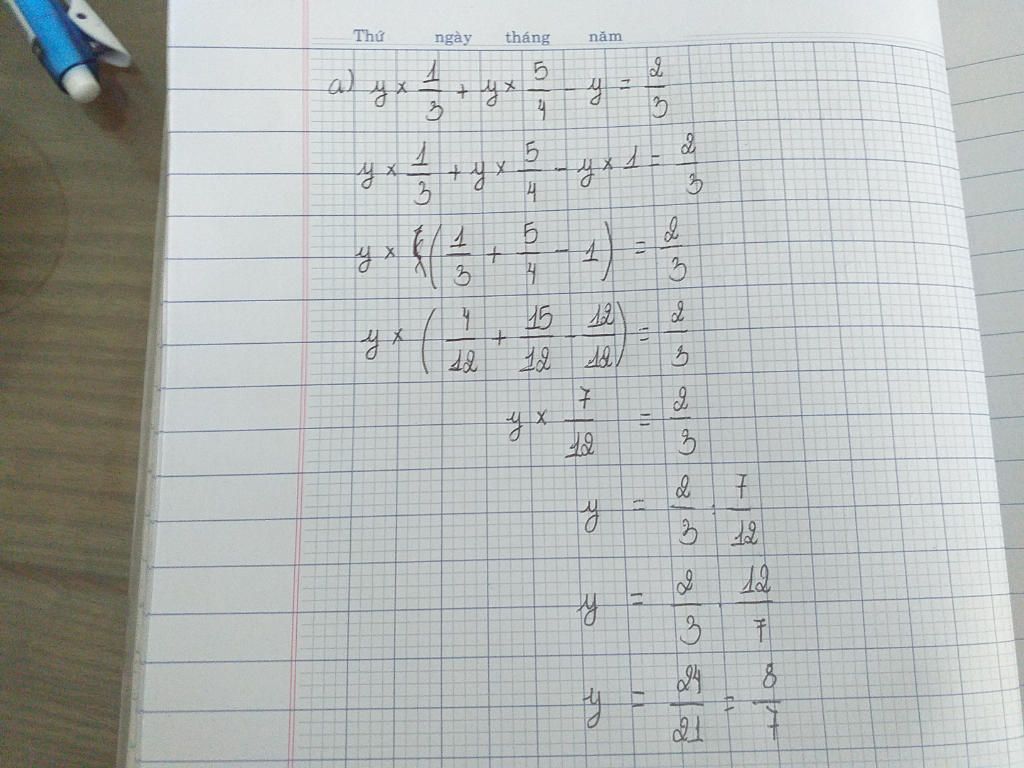 Thứ ngày tháng năm
a) y × 1/3 + y × 5/4 - y = 2/3
y × 1/3 + y × 5/4 - y × 1 = 2/3
y × (1/3 + 5/4 - 1) = 2/3
y × (4/12 + 15/12 - 12/12) = 2/3
y × 7/12 = 2/3
y = 2/3 . 7/12
y = 2/3 . 12/7
y = 24/21 = 8/7